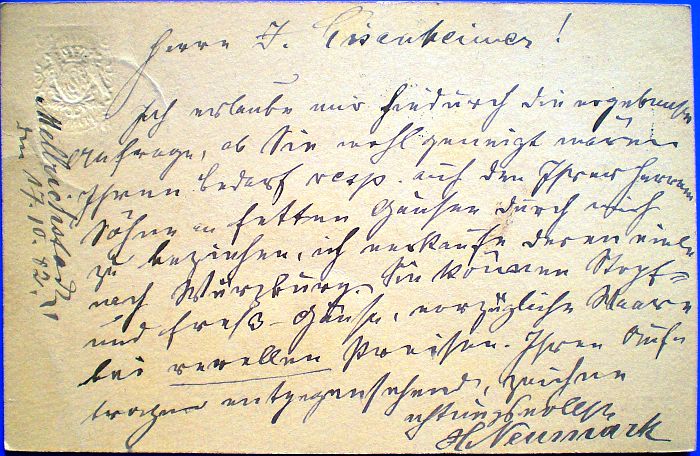 Herrn J. Eisenheimer!
Ich erlaube mir hiedurch die ergebenste
Anfrage, ob Sie wohl geneigt wären
Ihren Bedarf resp. auch den Ihrer Herren
Söhne in fetten Gänsen durch mich
zu beziehen, ich verkaufe deren viele
nach Würzburg. Sie können Stopf-
und Freß-Gänse, vorzügliche Waare
bei reellen Preisen. Ihren Auf-
trägen entgegensehend, zeichne
achtungsvollst
H Neumark
Mellrichstadt
den 17. 10. 82.